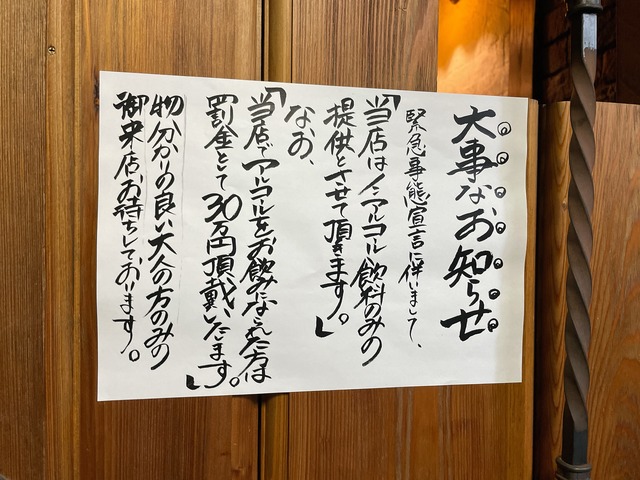 大事なお知らせ
緊急事態宣言に伴いまして、
「当店はノンアルコール飲料のみの
提供とさせて頂きます。」
なお、
「当店でアルコールをお飲みになられた方は
罰金として30万円頂戴いたします。」
物分かりの良い大人の方のみの
御来店お待ちしております。